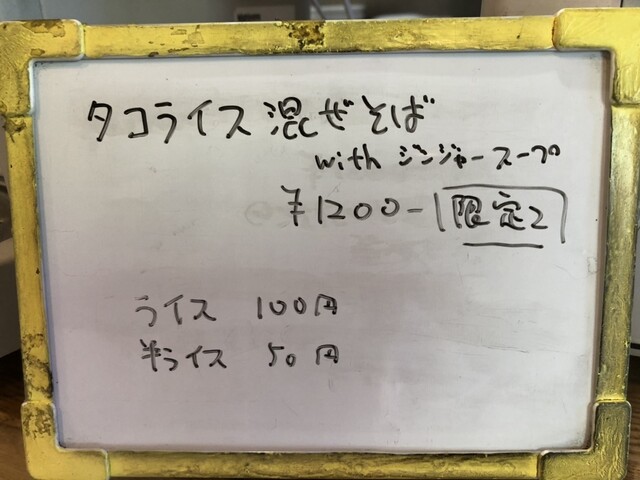 タコライス混ぜそば
with ジンジャースープ
¥1200- 限定2
ライス 100円
半ライス 50円